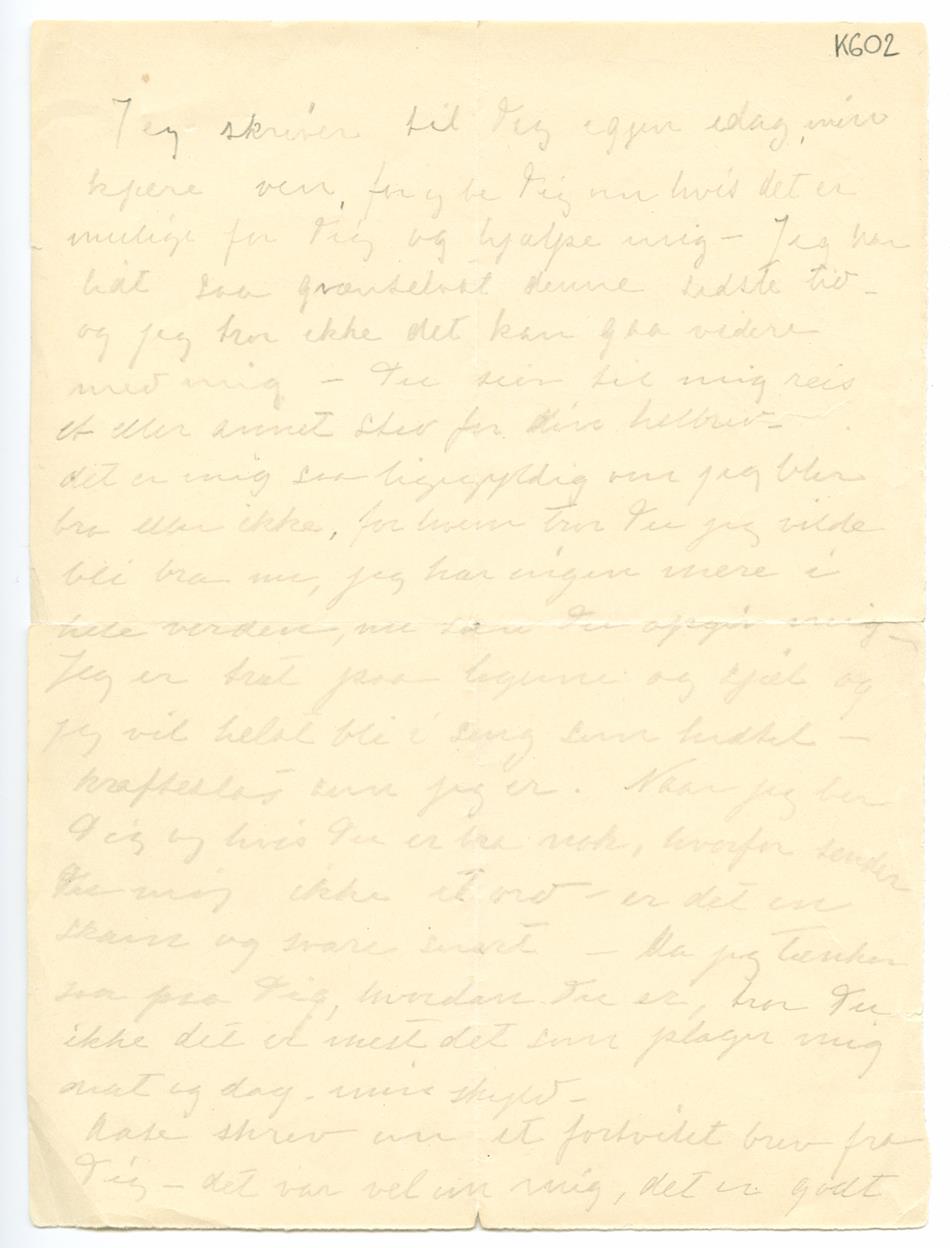 K602
Jeg skriver til Dig igjen idag, min
kjære ven, for og be Dig om hvis det er
mulige for Dig og hjælpe mig – Jeg har
lidt saa grænseløst denne sidste tid –
og jeg tror ikke det kan gaa videre
med mig – Du sier til mig reis
et eller annet sted for din helbred –
det er mig saa ligegyldig om jeg blir
bra eller ikke, for hvem tror Du jeg vilde
bli bra nu, jeg har ingen mere i
hele verden, nu Du opgir mig –
Jeg er træt paa legeme og sjæl og
jeg vil helst bli i seng som –
kræftesløs som jeg er. Naar jeg ber
Dig og hvis Du er bra nok, hvorfor sender
Du mig ikke et ord – er det en
skam og svare – Da jeg tænker
saa paa Dig, hvordan Du er, tror Du
ikke det er mest det som plager mig
nat og dag – min skyld –
Aase skrev om et fortvilet brev fra
Dig – det var vel om mig, det er godt